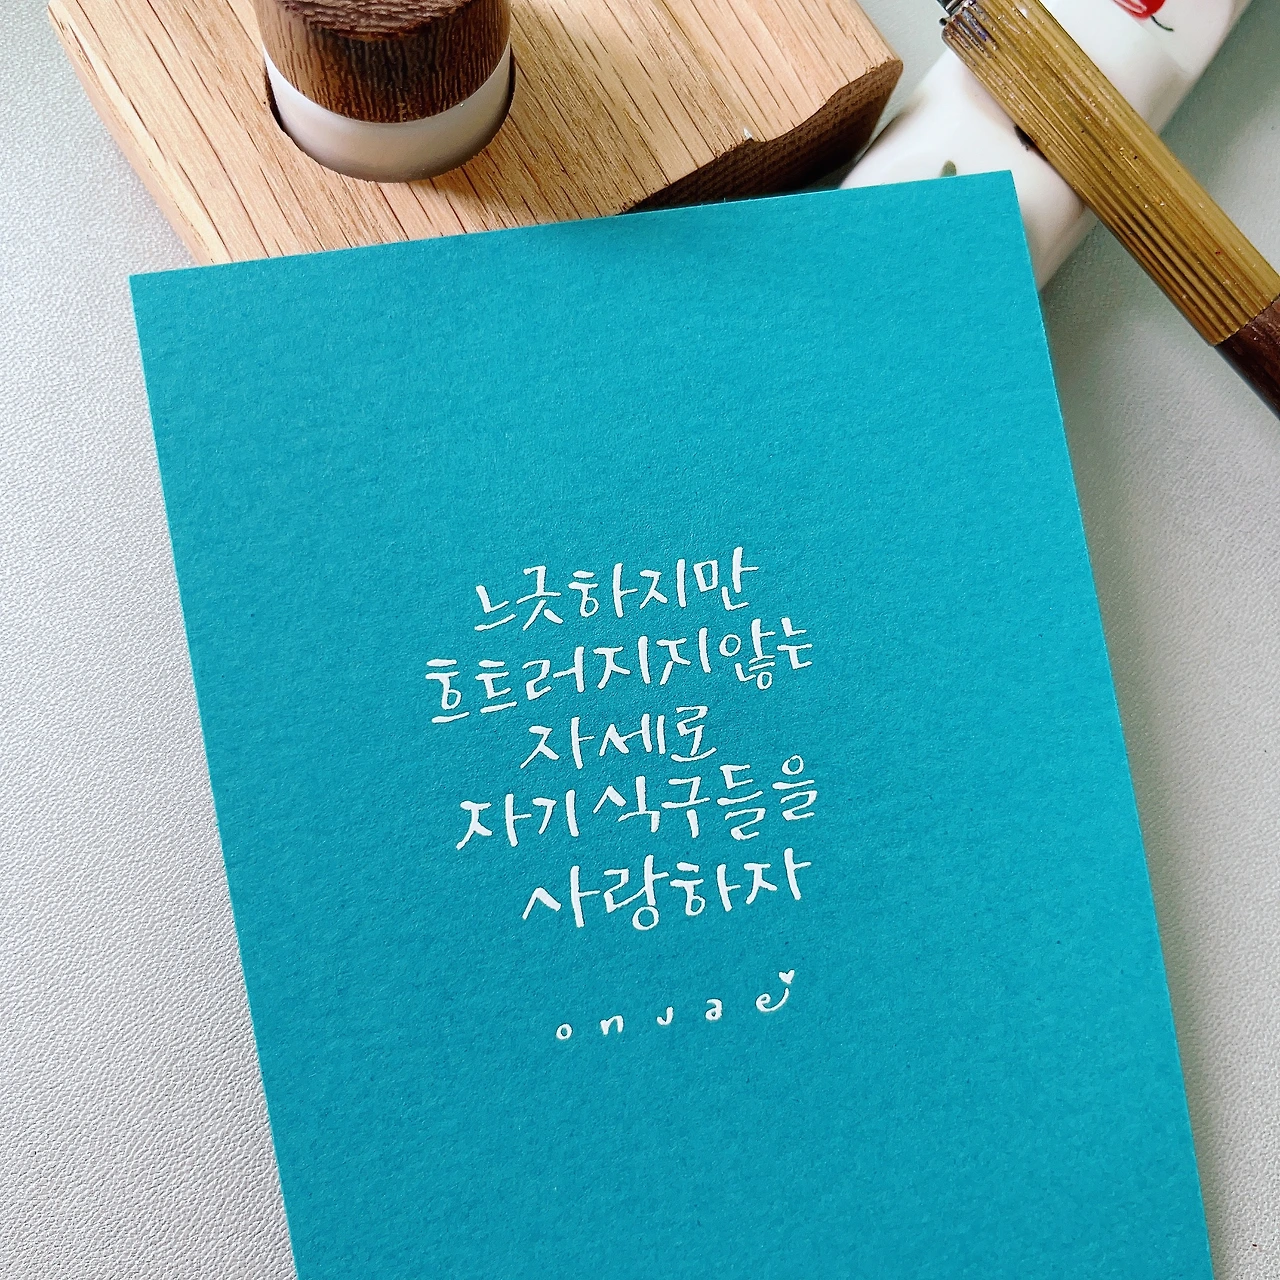 느긋하지만
흐트러지지않는
자세로
자기식구들을
사랑하자
onuae